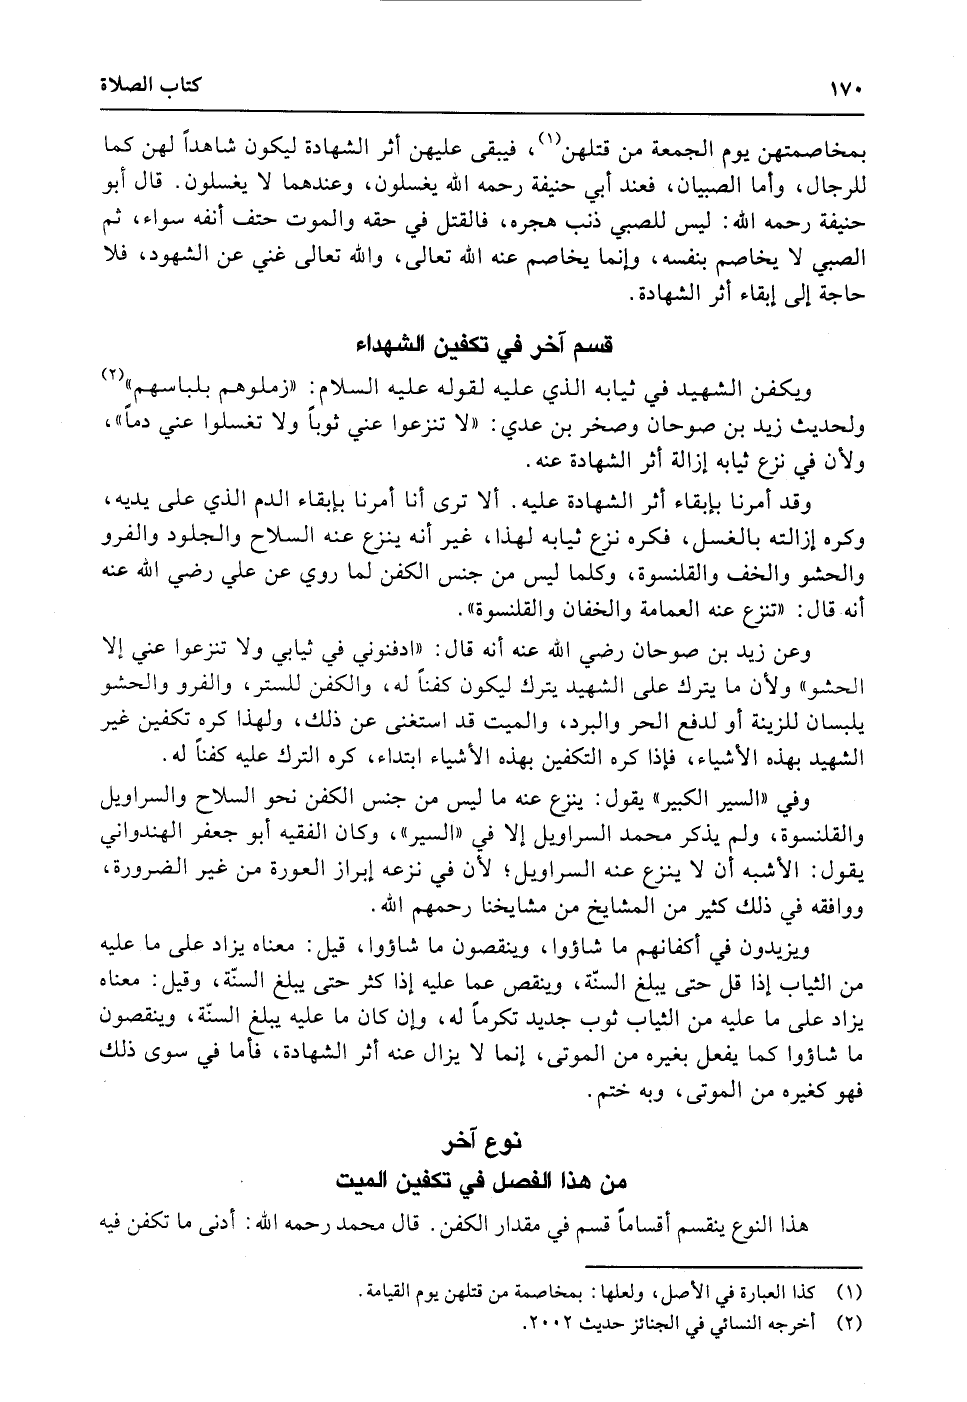 ١٧٠ كتاب الصلاة
بمخاصمتهن يوم الجمعة من قتلهن(١)، فيبقى عليهن أثر الشهادة ليكون شاهداً لهن كما
للرجال، وأما الصبيان، فعند أبي حنيفة رحمه الله يغسلون، وعندهما لا يغسلون. قال أبو
حنيفة رحمه الله: ليس للصبي ذنب هجره، فالقتل في حقه والموت حتف أنفه سواء، ثم
الصبي لا يخاصم بنفسه، وإنما يخاصم عنه الله تعالى، والله تعالى غني عن الشهود، فلا
حاجة إلى إبقاء أثر الشهادة.
قسم آخر في تكفين الشهداء
ويكفن الشهيد في ثيابه الذي عليه لقوله عليه السلام: «زملوهم بلباسهم»(٢)
ولحديث زيد بن صوحان وصخر بن عدي: «لا تنزعوا عني ثوباً ولا تغسلوا عني دماً»،
ولأن في نزع ثيابه إزالة أثر الشهادة عنه.
وقد أمرنا بإبقاء أثر الشهادة عليه. ألا ترى أنا أمرنا بإبقاء الدم الذي على يديه،
وكره إزالته بالغسل، فكره نزع ثيابه لهذا، غير أنه ينزع عنه السلاح والجلود والفرو
والحشو والخف والقلنسوة، وكلما ليس من جنس الكفن لما روي عن علي رضي الله عنه
أنه قال: «تنزع عنه العمامة والخفان والقلنسوة».
وعن زيد بن صوحان رضي الله عنه أنه قال: «ادفنوني في ثيابي ولا تنزعوا عني إلا
الحشو» ولأن ما يترك على الشهيد يترك ليكون كفناً له، والكفن للستر، والفرو والحشو
يلبسان للزينة أو لدفع الحر والبرد، والميت قد استغنى عن ذلك، ولهذا كره تكفين غير
الشهيد بهذه الأشياء، فإذا كره التكفين بهذه الأشياء ابتداء، كره الترك عليه كفناً له.
وفي «السير الكبير» يقول: ينزع عنه ما ليس من جنس الكفن نحو السلاح والسراويل
والقلنسوة، ولم يذكر محمد السراويل إلا في «السير»، وكان الفقيه أبو جعفر الهندواني
يقول: الأشبه أن لا ينزع عنه السراويل؛ لأن في نزعه إبراز العورة من غير الضرورة،
ووافقه في ذلك كثير من المشايخ من مشايخنا رحمهم الله.
ويزيدون في أكفانهم ما شاؤوا، وينقصون ما شاؤوا، قيل: معناه يزاد على ما عليه
من الثياب إذا قل حتى يبلغ السنّة، وينقص عما عليه إذا كثر حتى يبلغ السنّة، وقيل: معناه
يزاد على ما عليه من الثياب ثوب جديد تكرماً له، وإن كان ما عليه يبلغ السنّة، وينقصون
ما شاؤوا كما يفعل بغيره من الموتى، إنما لا يزال عنه أثر الشهادة، فأما في سوى ذلك
فهو كغيره من الموتى، وبه ختم.
نوع آخر
من هذا الفصل في تكفين الميت
هذا النوع ينقسم أقساماً قسم في مقدار الكفن. قال محمد رحمه الله: أدنى ما تكفن فيه
(١) كذا العبارة في الأصل، ولعلها: بمخاصمة من قتلهن يوم القيامة.
(٢) أخرجه النسائي في الجنائز حديث ٢٠٠٢.